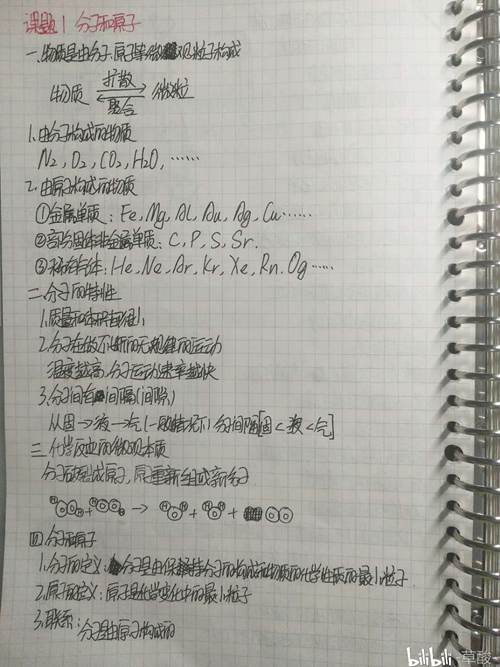 课题1 分子和原子
一.物质是由分子、原子等微观粒子构成
物质 扩散 聚合 微粒
1.由分子构成的物质
N2, O2, CO2, H2O, ……
2.由原子构成的物质
①金属单质: Fe, Mg, Al, Au, Ag, Cu……
②部分固体非金属单质: C, P, S, Sr.
③稀有气体: He, Ne, Ar, Kr, Xe, Rn, Og……
二.分子的特性
1.质量和体积都很小
2.分子在做不断的无规律的运动
温度越高,分子运动速率越快
3.分子间有间隔(间隙)
从固→液→气(一般情况下)分子间隔[固<液<气]
三.化学反应的微观本质
分子破裂成原子,原子重新组成新分子
HOOH+HOOH → HOH + HOH + OO
四.分子和原子
1.分子的定义:分子是由保持分子所构成的物质的化学性质的最小粒子
2.原子的定义:原子是化学变化中的最小粒子
3.联系:分子由原子构成的
bilibili 草酸